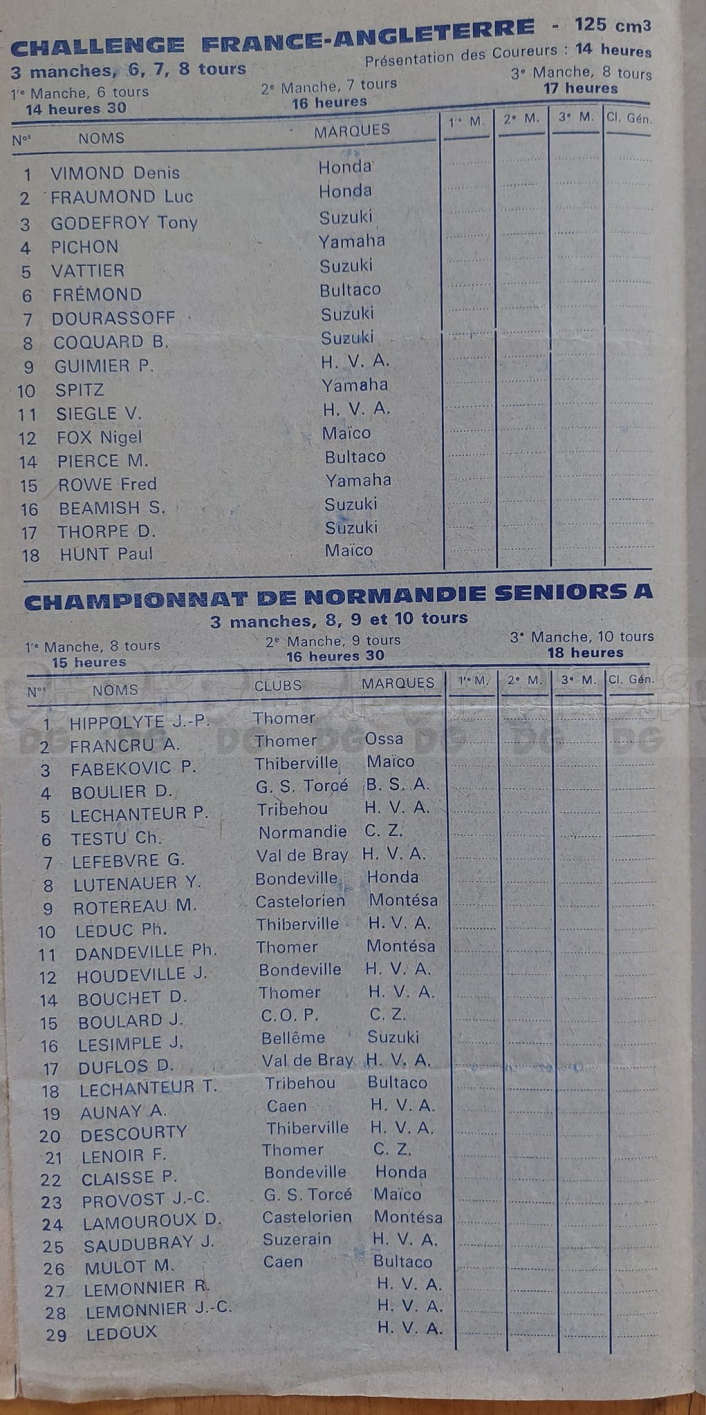 CHALLENGE FRANCE-ANGLETERRE - 125 cm3
3 manches, 6, 7, 8 tours Présentation des Coureurs : 14 heures
1re Manche, 6 tours 2e Manche, 7 tours 3e Manche, 8 tours
14 heures 30 16 heures 17 heures
Nos NOMS MARQUES 1re M. 2e M. 3e M. Cl. Gén.
1 VIMOND Denis Honda
2 FRAUMOND Luc Honda
3 GODEFROY Tony Suzuki
4 PICHON Yamaha
5 VATTIER Suzuki
6 FRÉMOND Bultaco
7 DOURASSOFF Suzuki
8 COQUARD B. Suzuki
9 GUIMIER P. H. V. A.
10 SPITZ Yamaha
11 SIEGLE V. H. V. A.
12 FOX Nigel Maïco
14 PIERCE M. Bultaco
15 ROWE Fred Yamaha
16 BEAMISH S. Suzuki
17 THORPE D. Suzuki
18 HUNT Paul Maïco
CHAMPIONNAT DE NORMANDIE SENIORS A
3 manches, 8, 9 et 10 tours
1re Manche, 8 tours 2e Manche, 9 tours 3e Manche, 10 tours
15 heures 16 heures 30 18 heures
Nos NOMS CLUBS MARQUES 1re M. 2e M. 3e M. Cl. Gén.
1 HIPPOLYTE J.-P. Thomer
2 FRANCRU A. Thomer Ossa
3 FABEKOVIC P. Thiberville Maïco
4 BOULIER D. G. S. Torcé B. S. A.
5 LECHANTEUR P. Tribehou H. V. A.
6 TESTU Ch. Normandie C. Z.
7 LEFEBVRE G. Val de Bray H. V. A.
8 LUTENAUER Y. Bondeville Honda
9 ROTEREAU M. Castelorien Montésa
10 LEDUC Ph. Thiberville H. V. A.
11 DANDEVILLE Ph. Thomer Montésa
12 HOUDEVILLE J. Bondeville H. V. A.
14 BOUCHET D. Thomer H. V. A.
15 BOULARD J. C.O.P. C. Z.
16 LESIMPLE J. Bellême Suzuki
17 DUFLOS D. Val de Bray H. V. A.
18 LECHANTEUR T. Tribehou Bultaco
19 AUNAY A. Caen H. V. A.
20 DESCOURTY Thiberville H. V. A.
21 LENOIR F. Thomer C. Z.
22 CLAISSE P. Bondeville Honda
23 PROVOST J.-C. G. S. Torcé Maïco
24 LAMOUROUX D. Castelorien Montésa
25 SAUDUBRAY J. Suzerain H. V. A.
26 MULOT M. Caen Bultaco
27 LEMONNIER R. H. V. A.
28 LEMONNIER J.-C. H. V. A.
29 LEDOUX H. V. A.